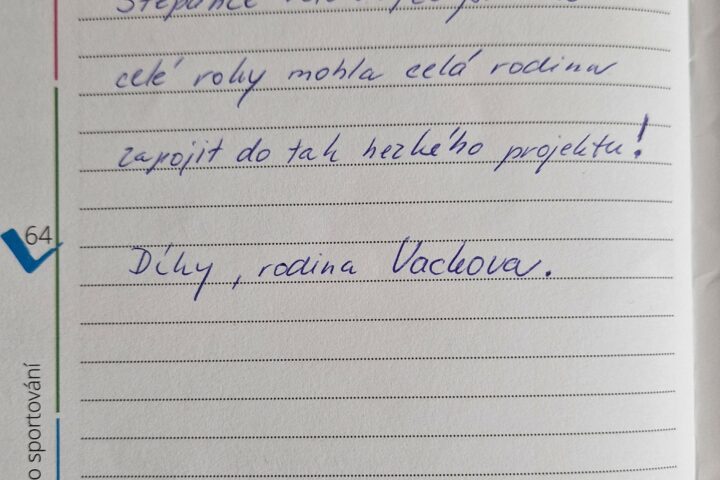 Štěpánce
celé roky mohla celá rodina
zapojit do tak hezkého projektu!
64
Díky, rodina Vackova.
o sportování